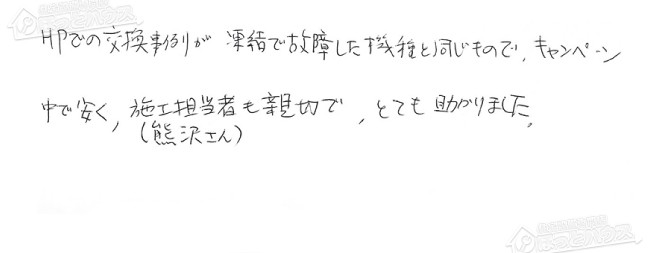 HPでの交換事例が凍結で故障した機種と同じもので、キャンペーン
中で安く、施工担当者も親切で、とても助かりました。
(熊沢さん)